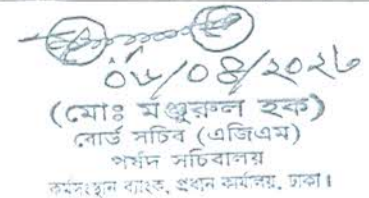 ০৮/০৪/২০২৬
(মোঃ মঞ্জুরুল হক)
বোর্ড সচিব (এজিএম)
পর্ষদ সচিবালয়
কর্মসংস্থান ব্যাংক, প্রধান কার্যালয়, ঢাকা।